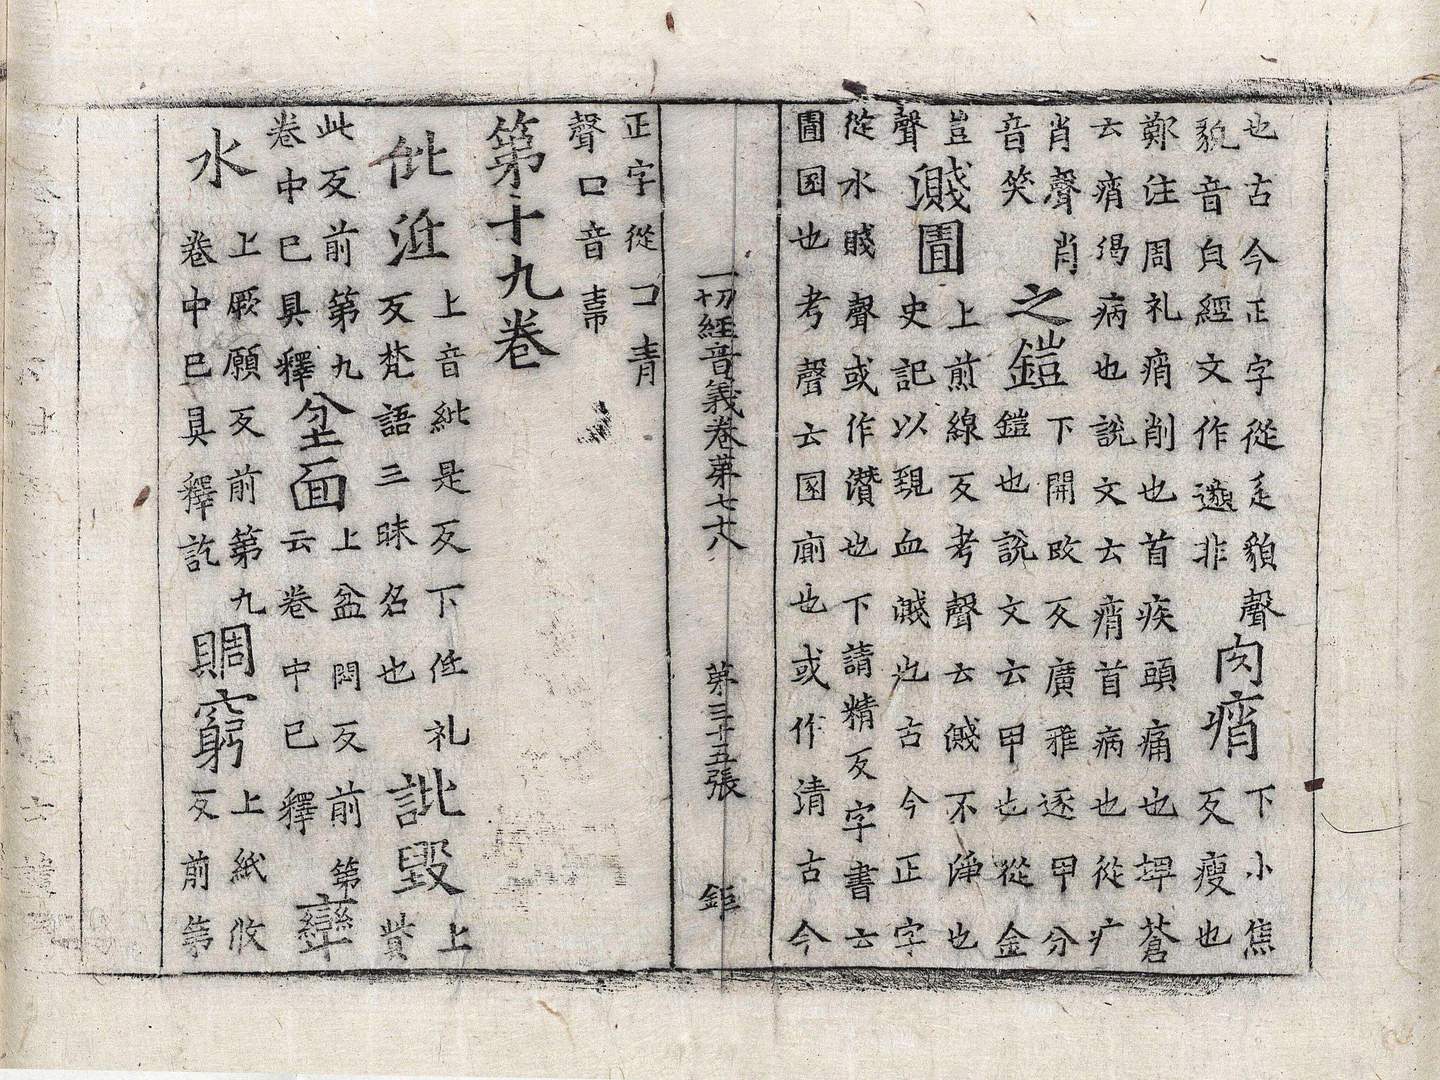 也古今正字從辵貌聲
貌音皃經文作邈非
肉痟
下小焦
反瘦也
鄭注周礼痟削也首疾頭痛也埤蒼
云痟渴病也說文云痟首病也從疒
肖聲肖
音笑
之鎧
下開改反廣雅逐甲分
鎧也說文云甲也從金
豈
聲
濺圊
上煎線反考聲云濺不淨也
史記以頸血濺也古今正字
從水賤聲或作灒也下請精反字書云
圊圂也考聲云圂廁也或作清古今
一切經音義卷苐七十八
苐三十五張
鉅
正字從囗青
聲囗音
第十九卷
上音紪是反下低礼
反梵語三昧名也
訿毀
上
貲
此反前第九
卷中已具釋
坌面
上盆悶反前第
云卷中已釋
孿
水
上厥願反前第九
卷中已具釋訖
賙窮
上紙攸
反前第